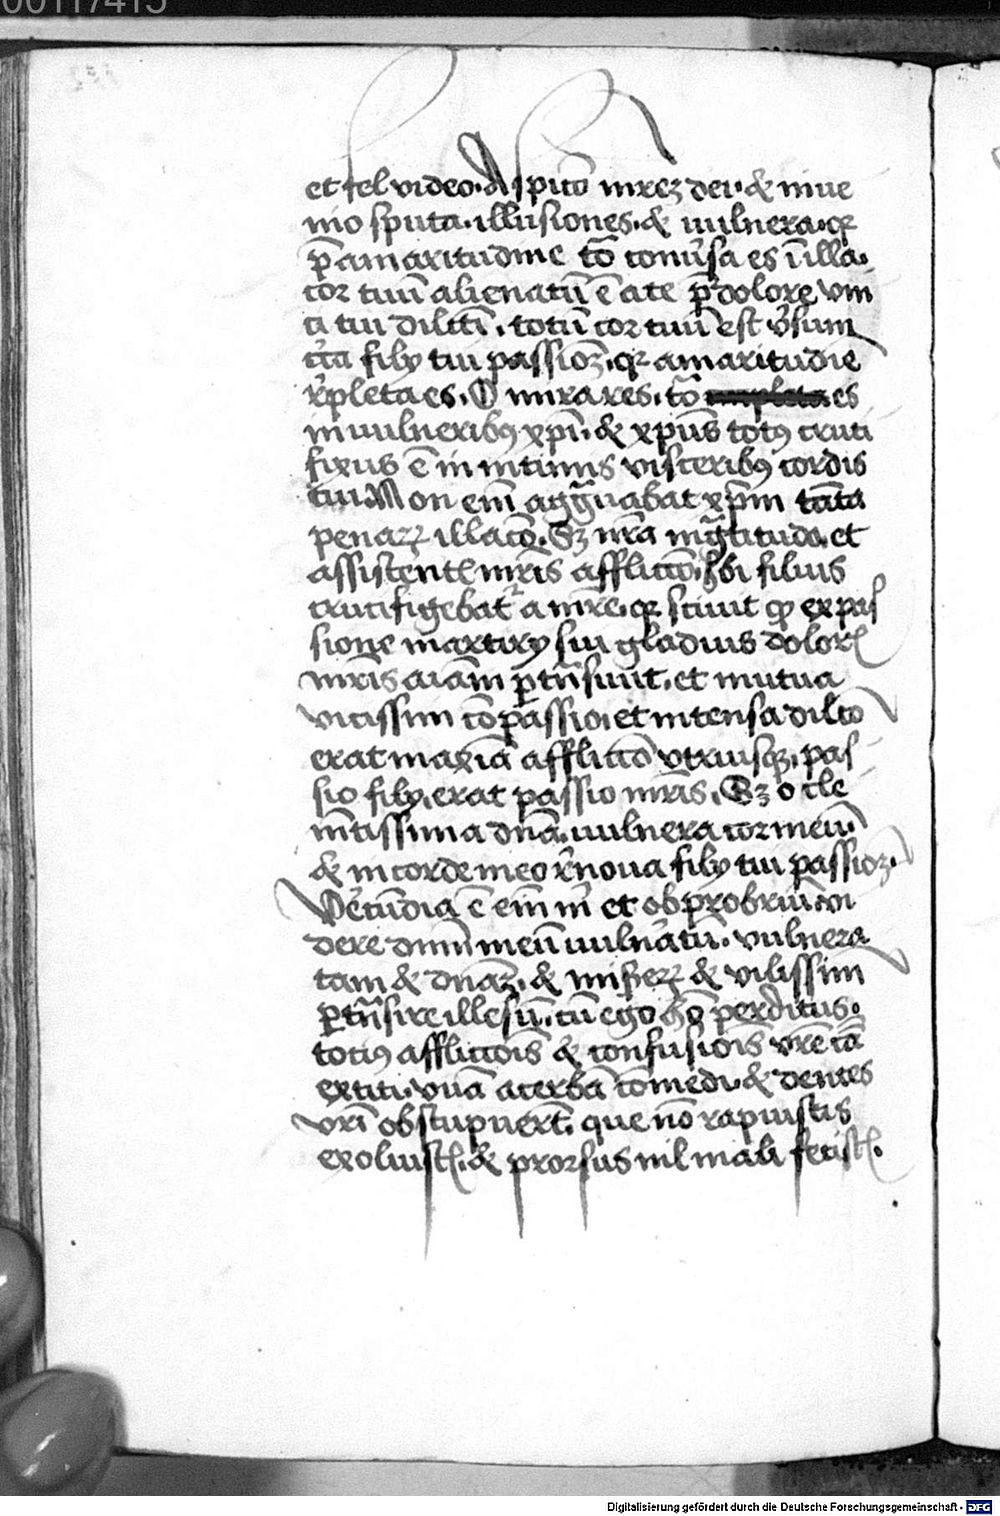 00117415
et fel video. Aspicio mr̄eʒ dei. & inue
nio sputa. illusiones. & uulnera. qr
p̄ amaritudine tō conuͥsa es ī illa.
cor tuū alienatū ē a te p̄ dolore vni
ci tui dilcī. totū cor tuū est vͥsum
cͥca filij tui passioʒ. qr amaritudīe
rͥpleta es. O mira res. tō es
in uulneribꝰ xp̄i. & xp̄us totꝰ cruci
fixus ē in intimis visceribꝰ cordis
tui. Non enī aggͣuabat xp̄m tāta
penaꝝ illacō. Sʒ nr̄a ingͣtitudo. et
assistentꝭ mr̄is afflictō. Ibi filius
crucifigebatᷣ a mr̄e. qr sciuit ꝙ ex pas
sione martirij sui gladius dolorꝭ
mr̄is aīam ꝑtn̄siuit. et mutua
vicissim cōpassio. et intensa dilcō
erat mariā afflictō vtriusqꝫ. pas
sio filij. erat passio mr̄is. Sʒ o cle
mētissima dn̄a. uulnera cor meū.
& in corde meo rͥnoua filij tui passioʒ.
Vͥecūdia ē enī mͥ et obprobriū. vi
dere dnm̄ meū uulnͥatū. vulnera
tam & dn̄aʒ. & miserꝝ & vilissim
ꝑtn̄sire illesū. cū ego hō perditus.
totiꝰ afflictōis & confusiōis vr̄e cā
extiti. vuā acerbā cōmedi. & dentes
vr̄i obstupuerūt. que nō rapuistis
exoluistꝭ. & prorsus nil mali fecistꝭ.
Digitalisierung gefördert durch die Deutsche Forschungsgemeinschaft - DFG